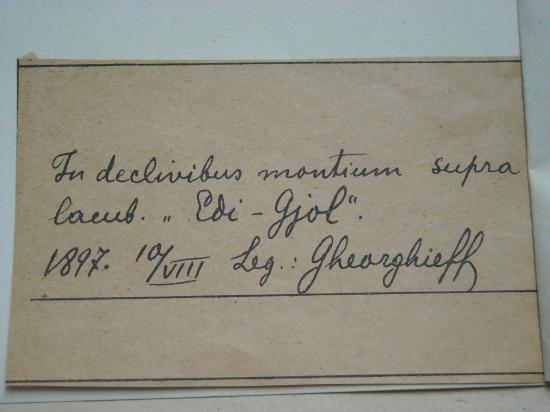 In declivibus montium supra
lacub. „Edi-Gjol“.
1897. 10/VIII Leg.: Gheorghieff